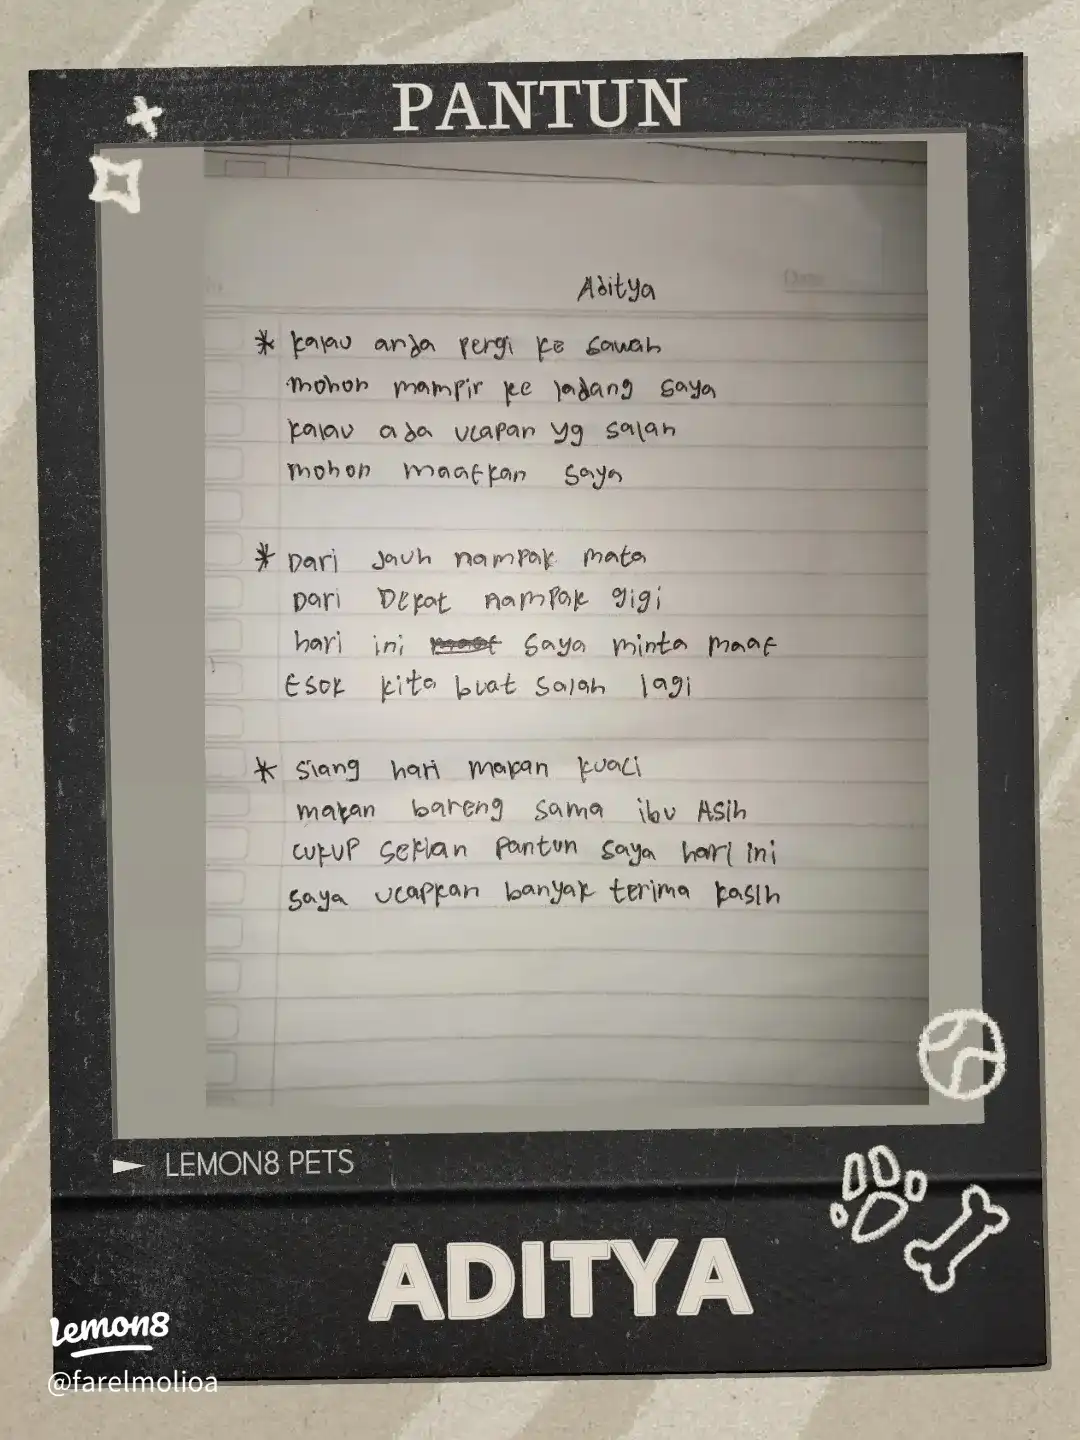 PANTUN
Aditya
Date
* kalau anda pergi ke sawah
mohon mampir ke ladang saya
kalau ada ucapan yg salah
mohon maafkan saya
* Dari Jauh nampak mata
Dari Dekat nampak gigi
hari ini maaf saya minta maaf
Esok kita buat salah lagi
* siang hari makan kuaci
makan bareng sama ibu Asih
cukup sekian pantun saya hari ini
saya ucapkan banyak terima kasih
LEMON8 PETS
ADITYA
Lemon8
@farelmolioa